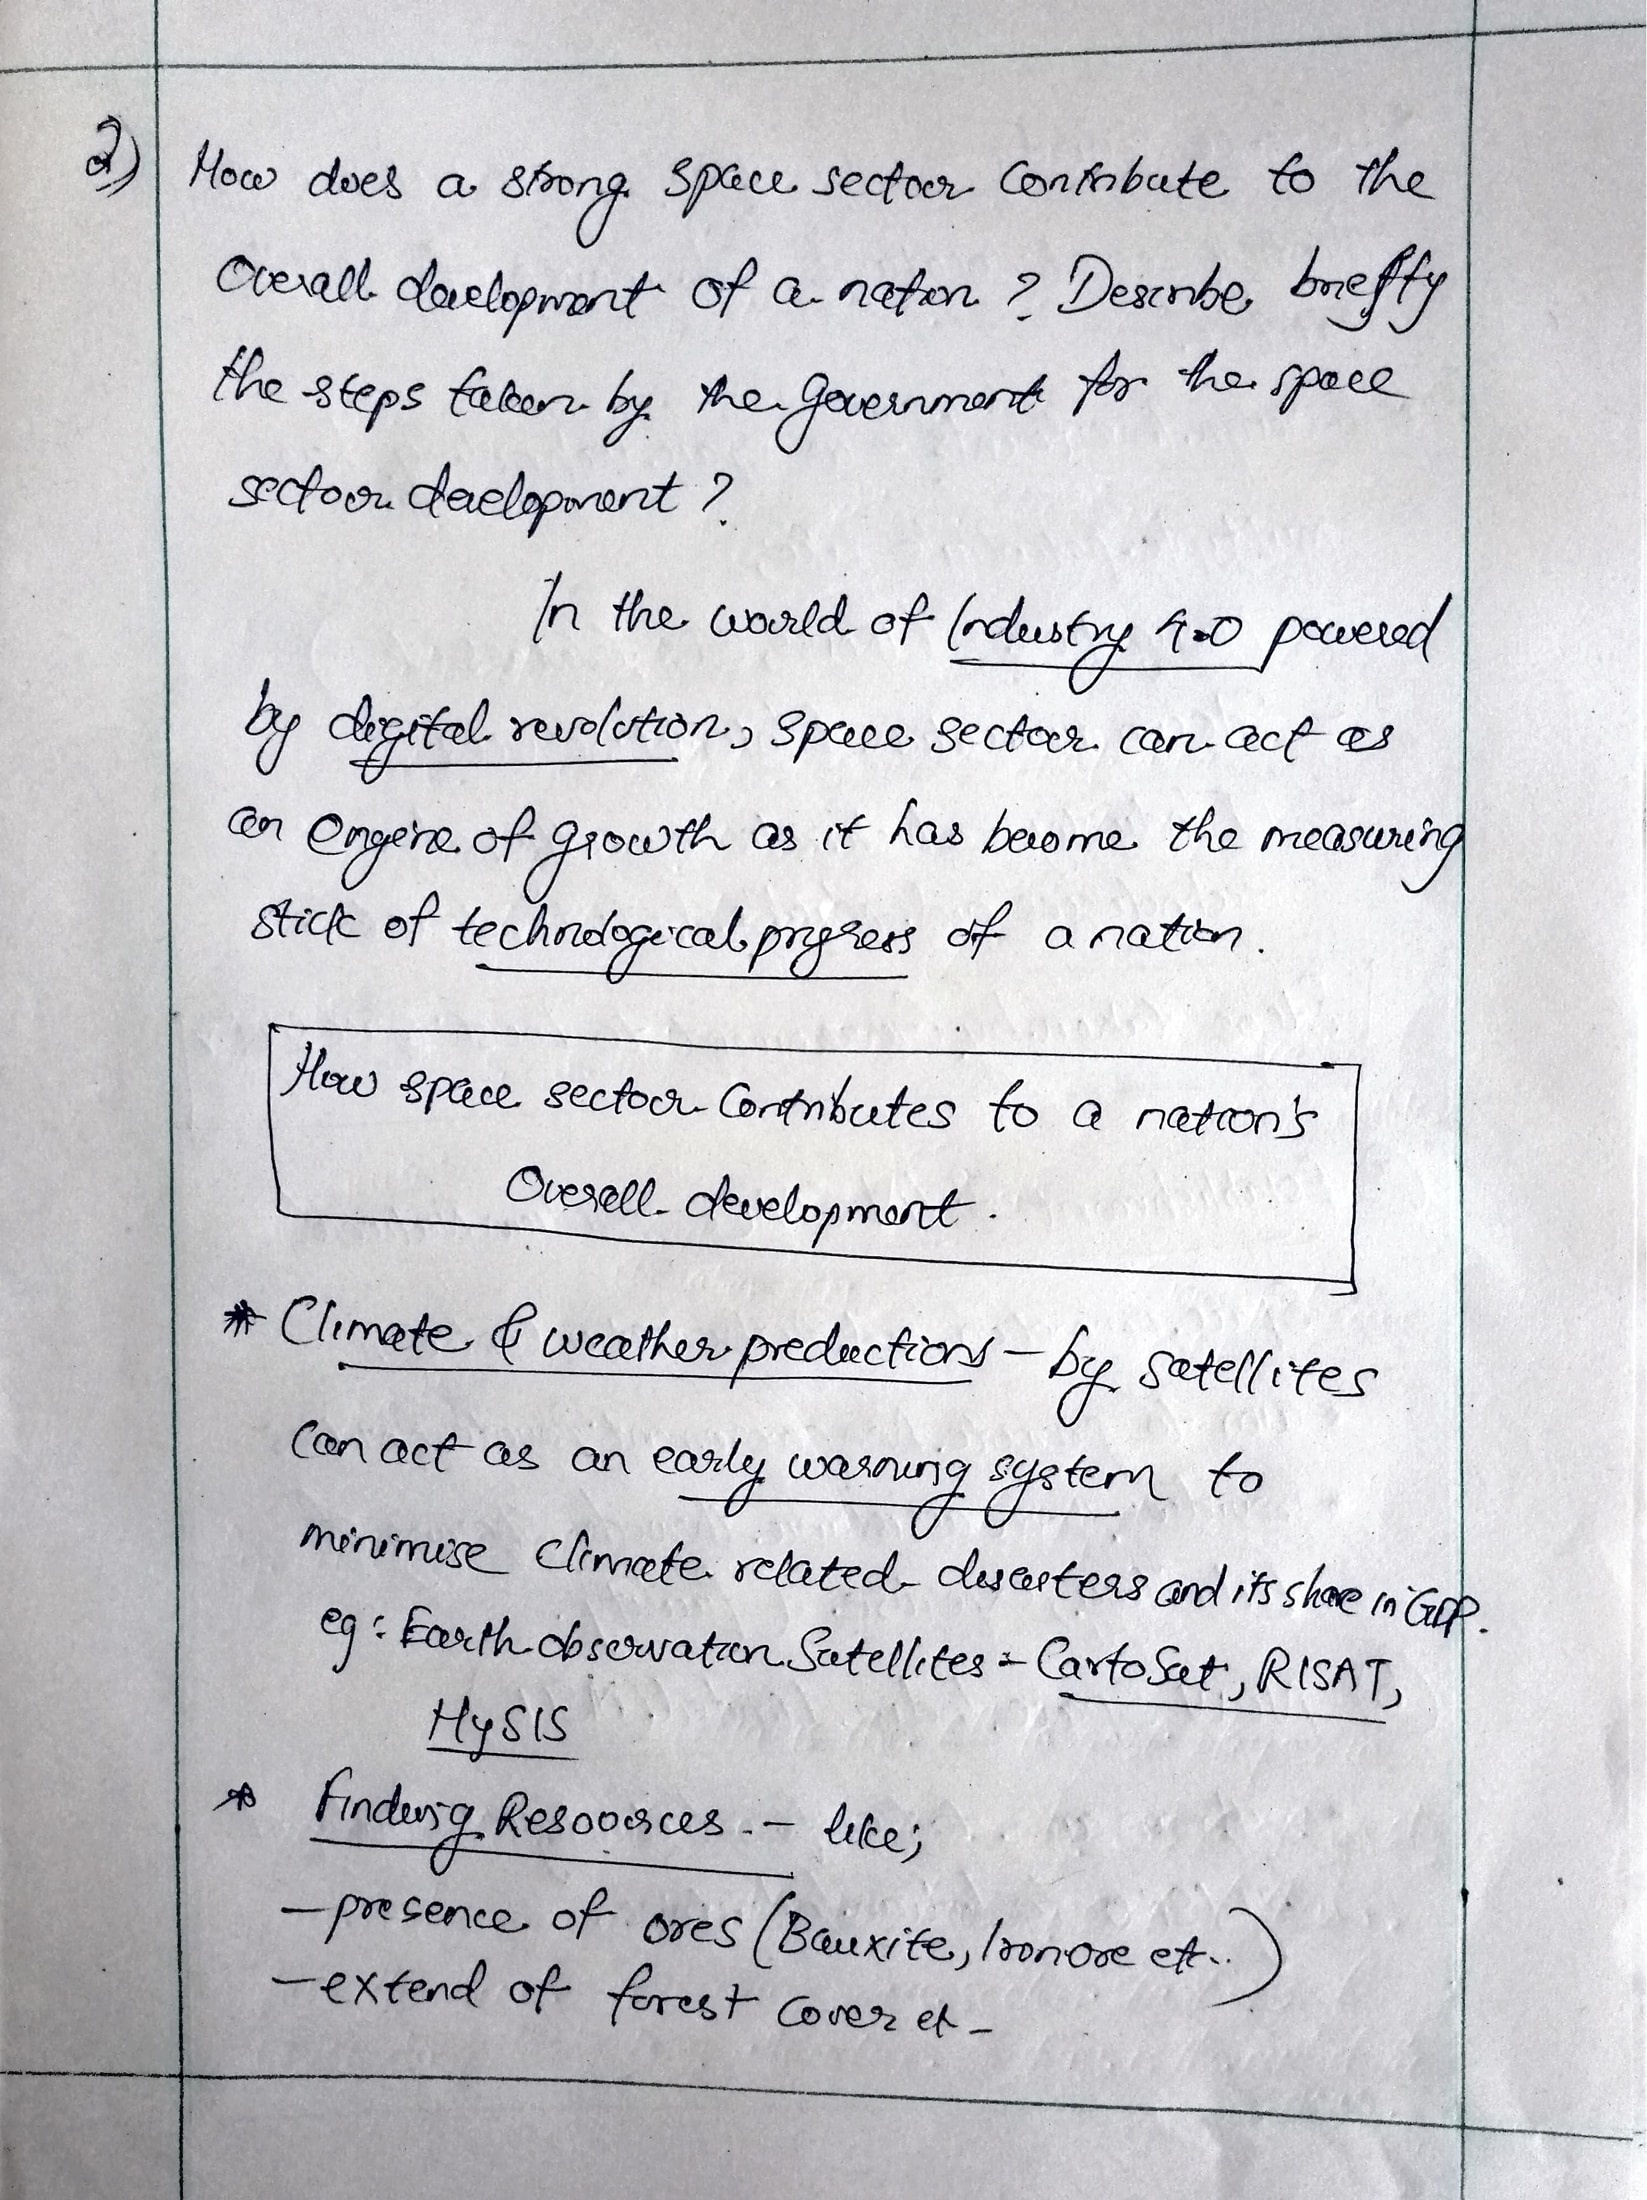 2) How does a strong space sector contribute to the
Overall development of a nation ? Describe briefly
the steps taken by the Government for the space
sector development ?
In the world of Industry 4.0 powered
by digital revolution, space sector can act as
an engine of growth as it has become the measuring
stick of technological progress of a nation.
How space sector contributes to a nation's
Overall development.
* Climate & weather predictions - by satellites
can act as an early warning system to
minimise climate related disasters and its share in GDP.
eg: Earth observation Satellites - CartoSat, RISAT,
HySIS
* Finding Resources. - like;
- presence of ores (Bauxite, Iron ore etc..)
- extend of forest cover etc